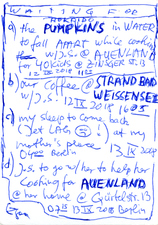 WAITING FOR
HOKKAIDO
a) the PUMPKINS in WATER
to fall APART while cooking
w/J.S. @ AUENLAND
for 40 kids @ ZINGSTER St. 13
12 IX 2018
b) our Coffee @ STRANDBAD
WEISSENSEE
w/J.S. 12 IX 2018
c) my sleep to come back
(Jet LAG) at my
mother's place
Berlin IX 2018
d) J.S. to go w/ her to help her
Cooking for AUENLAND
@ her home @ Gürtelstr. 13
13 IX 2018 Berlin